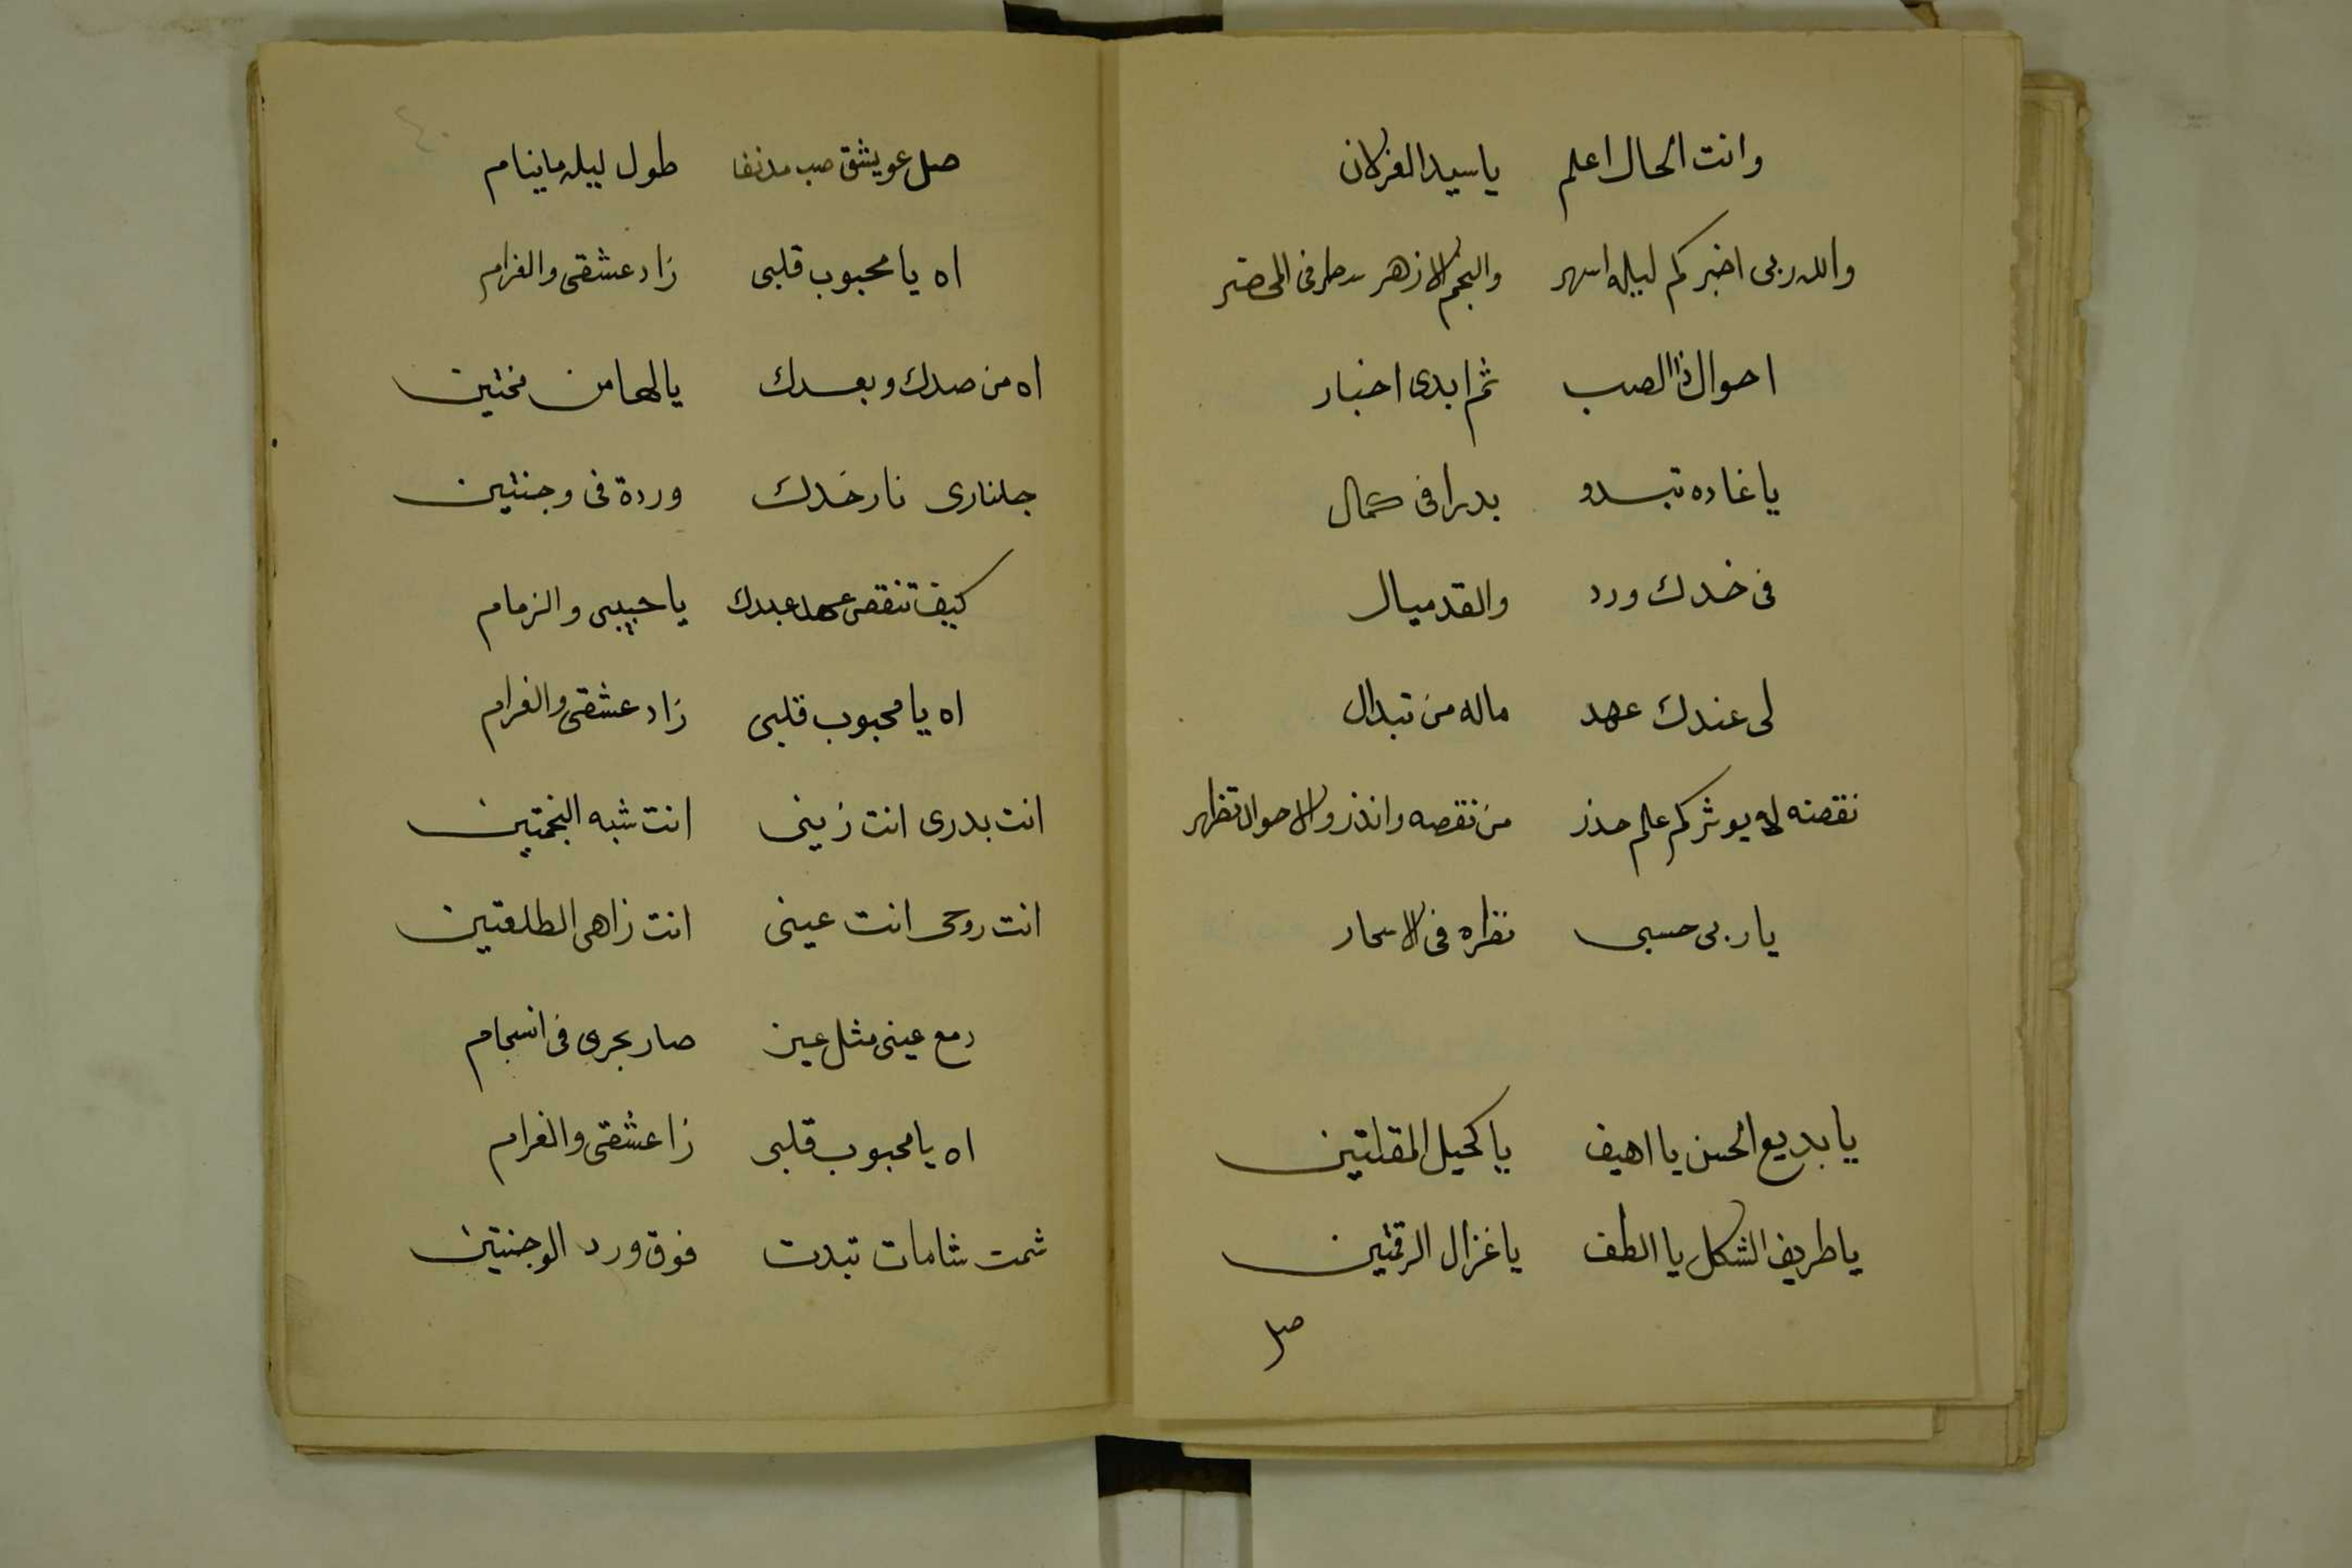 وانت الحال اعلم ياسيد الغزلان
والله ربى اخبركم ليله اسهر والنجم الازهر سطر فى المحضر
احوال ذا الصب ثم ابدى اخبار
يا غاده تبدو بدرا فى كمال
فى خدك ورد والقد ميال
لى عندك عهد ماله من تبدال
نقضته له يوثر كم علم حذر من نقضه وانذر والاحوال تظهر
يا ربى حسبى نظره فى الاسحار
يا بديع الحسن يا اهيف يا كحيل المقلتين
يا ظريف الشكل يا الطف يا غزال الرقمتين
صل
٤٠
صل عويشق صب مدنفا طول ليله ماينام
اه يا محبوب قلبى زاد عشقى والغرام
اه من صدك وبعدك يالها من محنتين
جلنارى نار خدك وردة فى وجنتين
كيف تنقض عهد عبدك يا حبيبى والزمام
اه يا محبوب قلبى زاد عشقى والغرام
انت بدرى انت زينى انت شبه النجمتين
انت روحى انت عينى انت زاهى الطلعتين
دمع عينى مثل عين صار يجرى فى انسجام
اه يا محبوب قلبى زا عشقى والغرام
شمت شامات تبدت فوق ورد الوجنتين